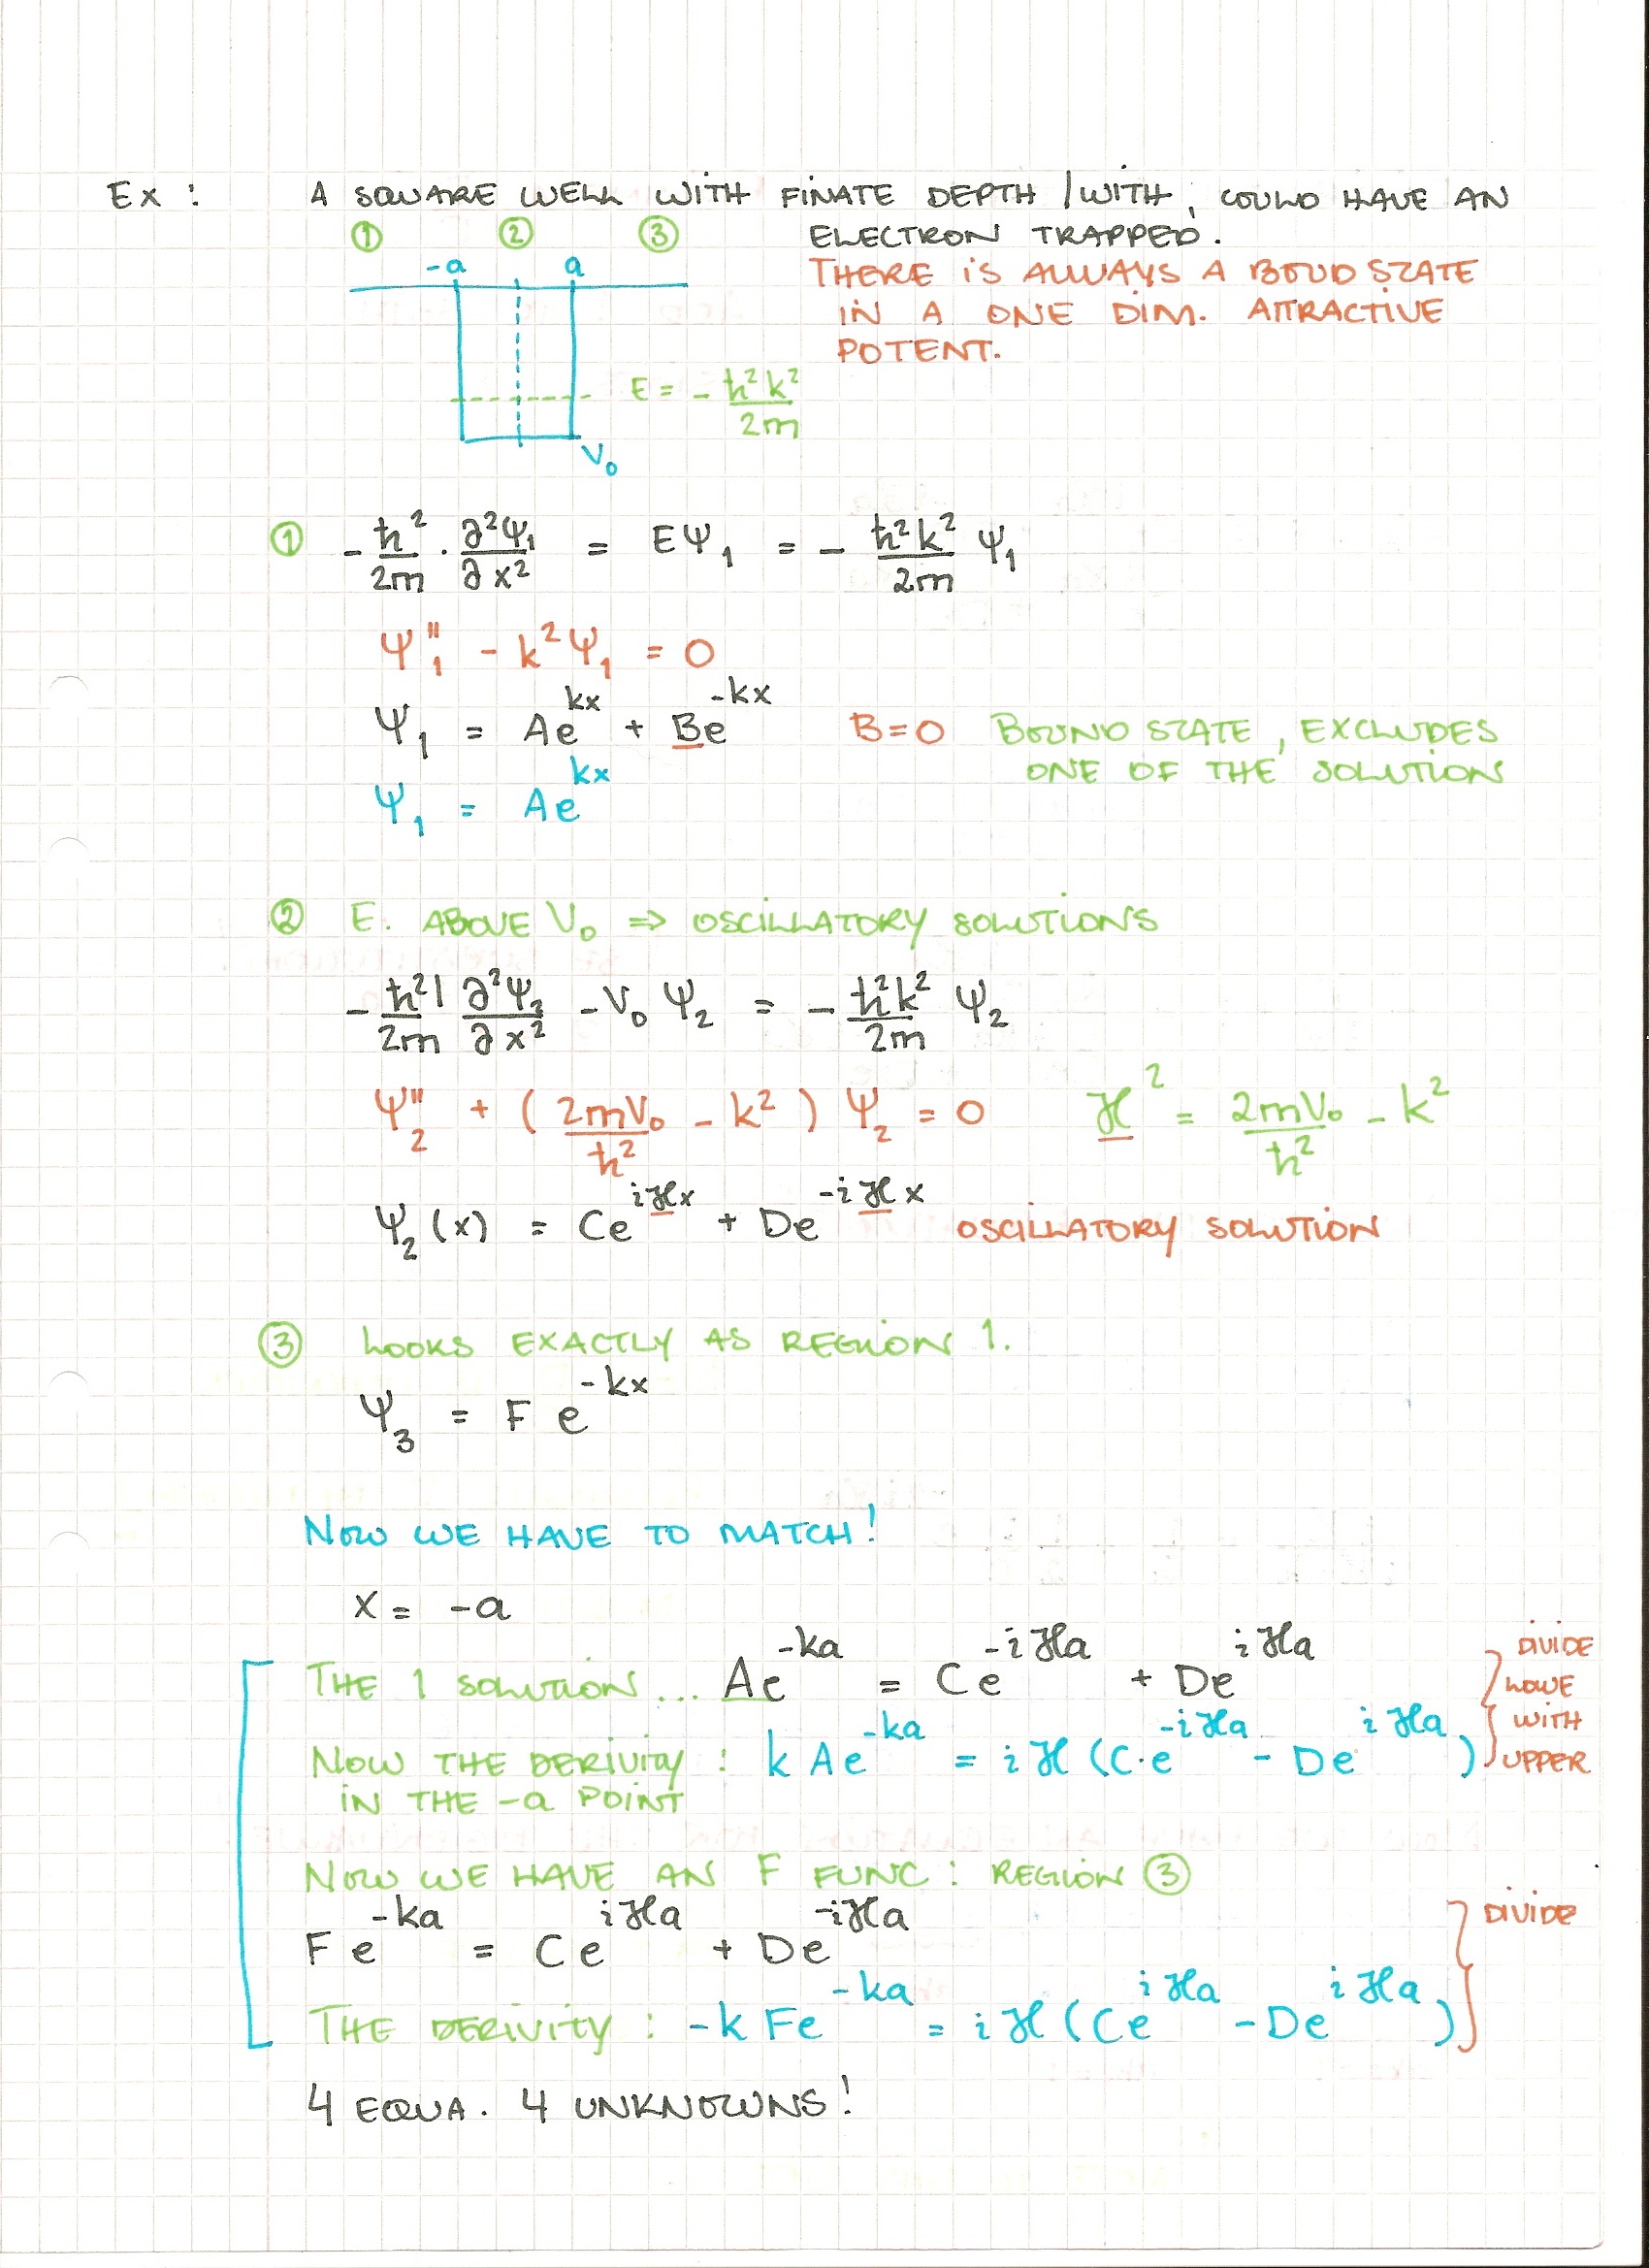 Ex : A SQUARE WELL WITH FINATE DEPTH / WITH, COULD HAVE AN
ELECTRON TRAPPED.
① ② ③
-a a
THERE IS ALWAYS A BOUD STATE
IN A ONE DIM. ATTRACTIVE
POTENT.
E = - ħ²k² / 2m
V₀
① - ħ²/2m · ∂²Ψ₁/∂x² = EΨ₁ = - ħ²k²/2m Ψ₁
Ψ₁'' - k²Ψ₁ = 0
Ψ₁ = Ae^{kx} + Be^{-kx} B=0 BOUND STATE, EXCLUDES
ONE OF THE SOLUTION
Ψ₁ = Ae^{kx}
② E. ABOVE V₀ ⇒ OSCILLATORY SOLUTIONS
- ħ²/2m ∂²Ψ₂/∂x² - V₀ Ψ₂ = - ħ²k²/2m Ψ₂
Ψ₂'' + ( 2mV₀/ħ² - k² ) Ψ₂ = 0 ℋ² = 2mV₀/ħ² - k²
Ψ₂(x) = Ce^{iℋx} + De^{-iℋx} OSCILLATORY SOLUTION
③ LOOKS EXACTLY AS REGION 1.
Ψ₃ = F e^{-kx}
NOW WE HAVE TO MATCH!
x = -a
THE 1 SOLUTION... Ae^{-ka} = Ce^{-iℋa} + De^{iℋa}
NOW THE DERIVITY : k Ae^{-ka} = iℋ (C·e^{-iℋa} - De^{iℋa})
IN THE -a POINT
DIVIDE
LOWE
WITH
UPPER
NOW WE HAVE AN F FUNC: REGION ③
Fe^{-ka} = Ce^{iℋa} + De^{-iℋa}
THE DERIVITY : -k Fe^{-ka} = iℋ (Ce^{iℋa} - De^{iℋa})
DIVIDE
4 EQUA. 4 UNKNOWNS!